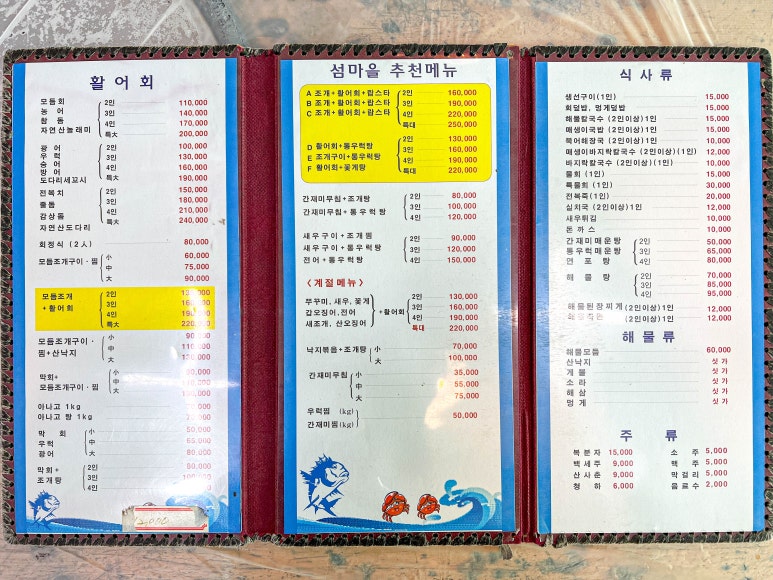 활어회
모듬회 2인 110,000
농어 3인 140,000
참돔 4인 170,000
자연산놀래미 특大 200,000
광어 2인 100,000
우럭 3인 130,000
숭어 4인 160,000
방어
도다리세꼬시 특大 190,000
전복치 2인 150,000
줄돔 3인 180,000
감성돔 4인 210,000
자연산도다리 특大 240,000
회정식 (2人) 80,000
모듬조개구이·찜 小 60,000
中 75,000
大 90,000
모듬조개 2인
+활어회 3인
4인
특大
모듬조개구이· 小 90,000
찜+산낙지 中 110,000
大 130,000
막회+ 小
모듬조개구이·찜 中
大
아나고 1kg
아나고 탕 1kg
막회 小 50,000
우럭 中 65,000
광어 大 80,000
막회+ 2인
조개탕 3인
4인
섬마을 추천메뉴
A 조개+활어회+랍스타 2인 160,000
B 조개+활어회+랍스타 3인 190,000
C 조개+활어회+랍스타 4인 220,000
특대 250,000
D 활어회+통우럭탕 2인 130,000
E 조개구이+통우럭탕 3인 160,000
F 활어회+꽃게탕 4인 190,000
특대 220,000
간재미무침+조개탕 2인 80,000
간재미무침+통우럭탕 3인 100,000
4인 120,000
새우구이+조개찜 2인 90,000
새우구이+통우럭탕 3인 120,000
전어+통우럭탕 4인 160,000
<계절메뉴>
쭈꾸미, 새우, 꽃게 2인 130,000
갑오징어,전어 +활어회 3인 160,000
새조개, 산오징어 4인 190,000
특대 220,000
낙지볶음+조개탕 小 70,000
中 100,000
大
간재미무침 小 35,000
中 55,000
大 75,000
우럭찜 (kg) 50,000
간재미찜 (kg)
식사류
생선구이(1인) 15,000
회덮밥, 멍게덮밥 15,000
해물칼국수 (2인이상)1인 10,000
매생이국밥 (2인이상)1인 10,000
북어해장국 (2인이상)1인 10,000
매생이바지락칼국수 (2인이상)(1인) 12,000
바지락칼국수 (2인이상)(1인) 10,000
물회 (1인) 15,000
특물회 (1인) 30,000
전복죽(1인) 20,000
실치국 (2인이상)1인 12,000
새우튀김 10,000
돈까스 10,000
간재미매운탕 2인 50,000
통우럭매운탕 3인 65,000
연포탕 4인 80,000
해물탕 2인 70,000
3인 85,000
4인 95,000
해물된장찌개 (2인이상)1인 12,000
(2인이상)1인 12,000
해물류
해물모듬 60,000
산낙지 싯가
개불 싯가
소라 싯가
해삼 싯가
멍게 싯가
주류
복분자 15,000 소주 5,000
백세주 9,000 맥주 5,000
산사춘 9,000 막걸리 5,000
청하 6,000 음료수 2,000